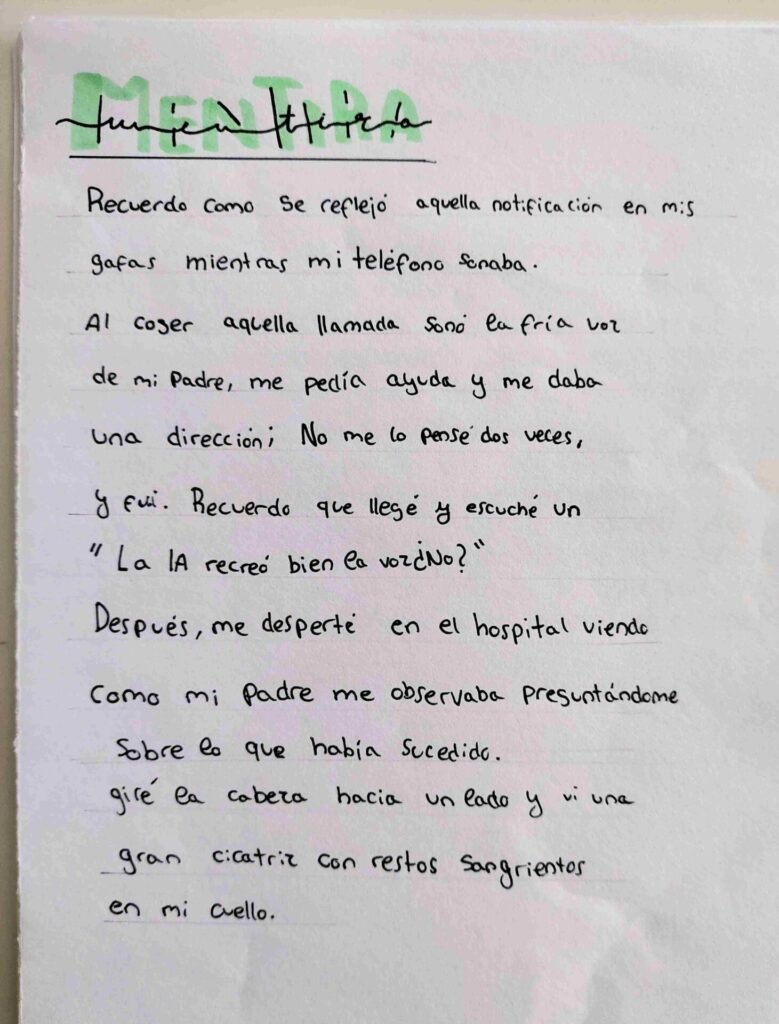 MENTIRA
Recuerdo como se reflejó aquella notificación en mis
gafas mientras mi teléfono sonaba.
Al coger aquella llamada sonó la fría voz
de mi padre, me pedía ayuda y me daba
una dirección; No me lo pensé dos veces,
y fui. Recuerdo que llegé y escuché un
"La IA recreó bien la voz¿No?"
Después, me desperté en el hospital viendo
como mi padre me observaba preguntándome
sobre lo que había sucedido.
giré la cabeza hacia un lado y vi una
gran cicatriz con restos sangrientos
en mi cuello.